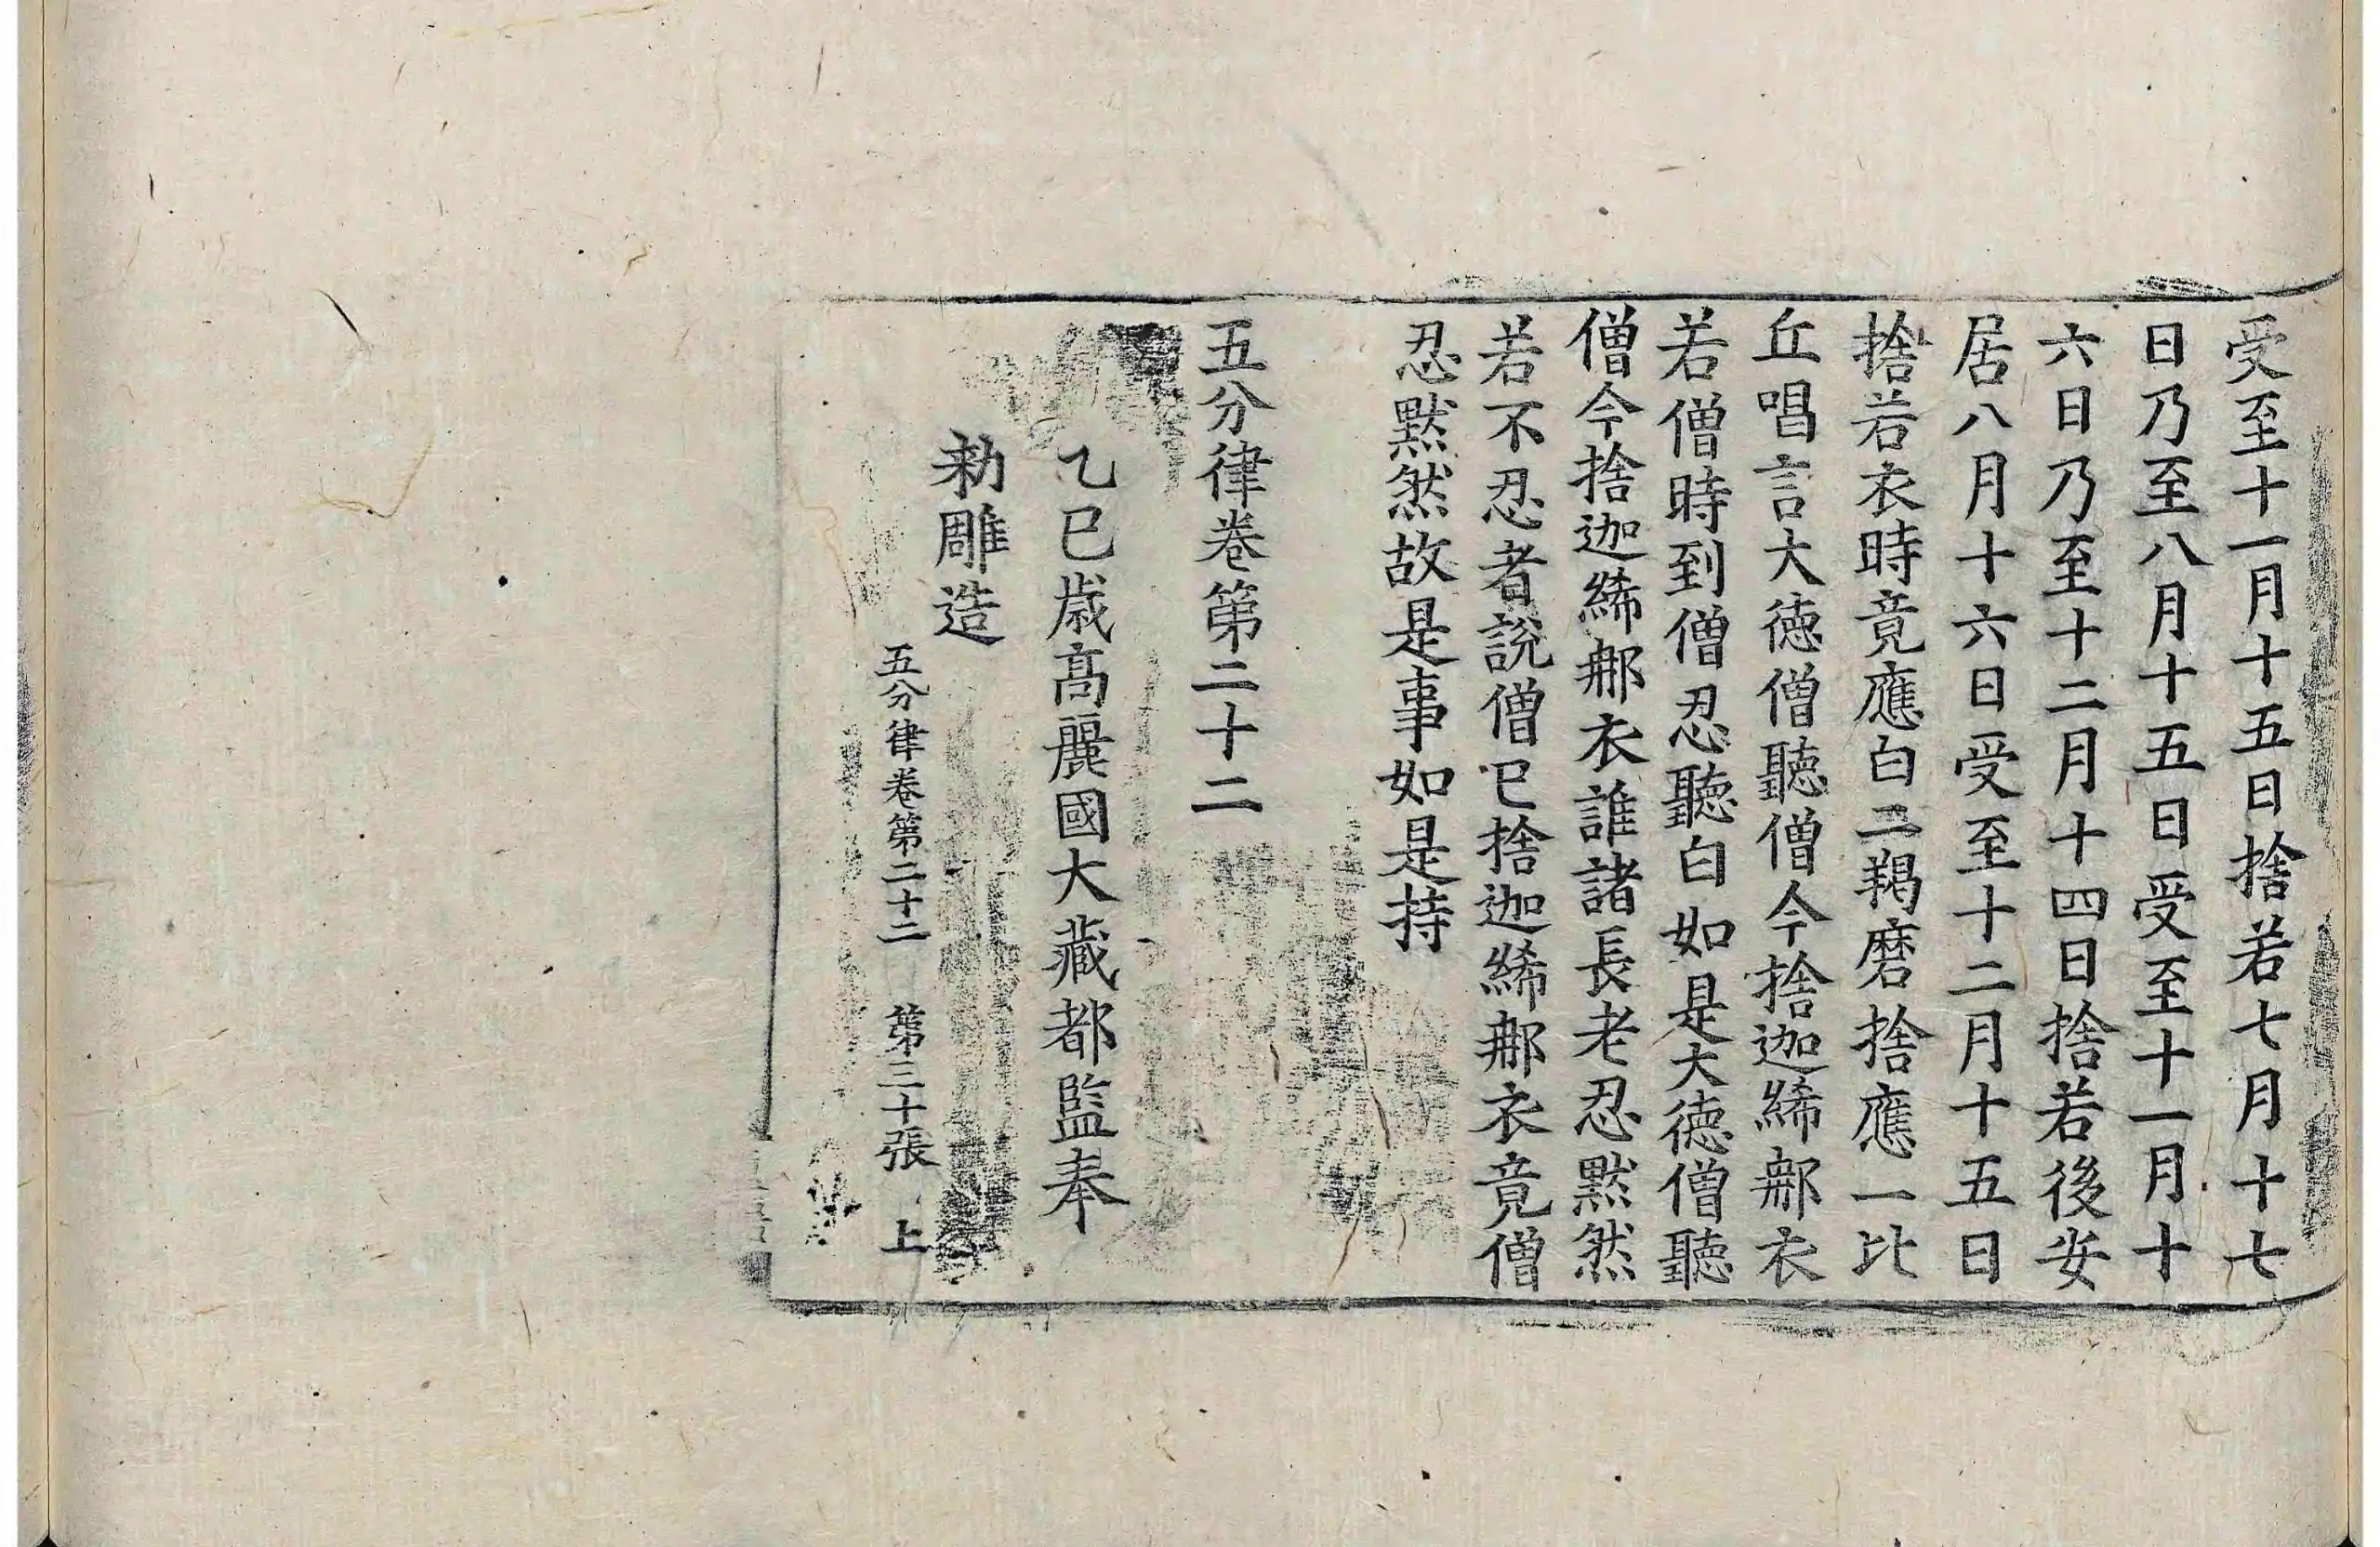 受至十一月十五日捨若七月十七
日乃至八月十五日受至十一月十
六日乃至十二月十四日捨若後安
居八月十六日受至十二月十五日
捨若衣時竟應白二羯磨捨應一比
丘唱言大德僧聽僧今捨迦絺那衣
若僧時到僧忍聽白如是大德僧聽
僧今捨迦絺那衣誰諸長老忍默然
若不忍者說僧已捨迦絺那衣竟僧
忍默然故是事如是持
五分律卷第二十二
乙巳歲高麗國大藏都監奉
勅雕造
五分律卷第二十二 第三十張 上